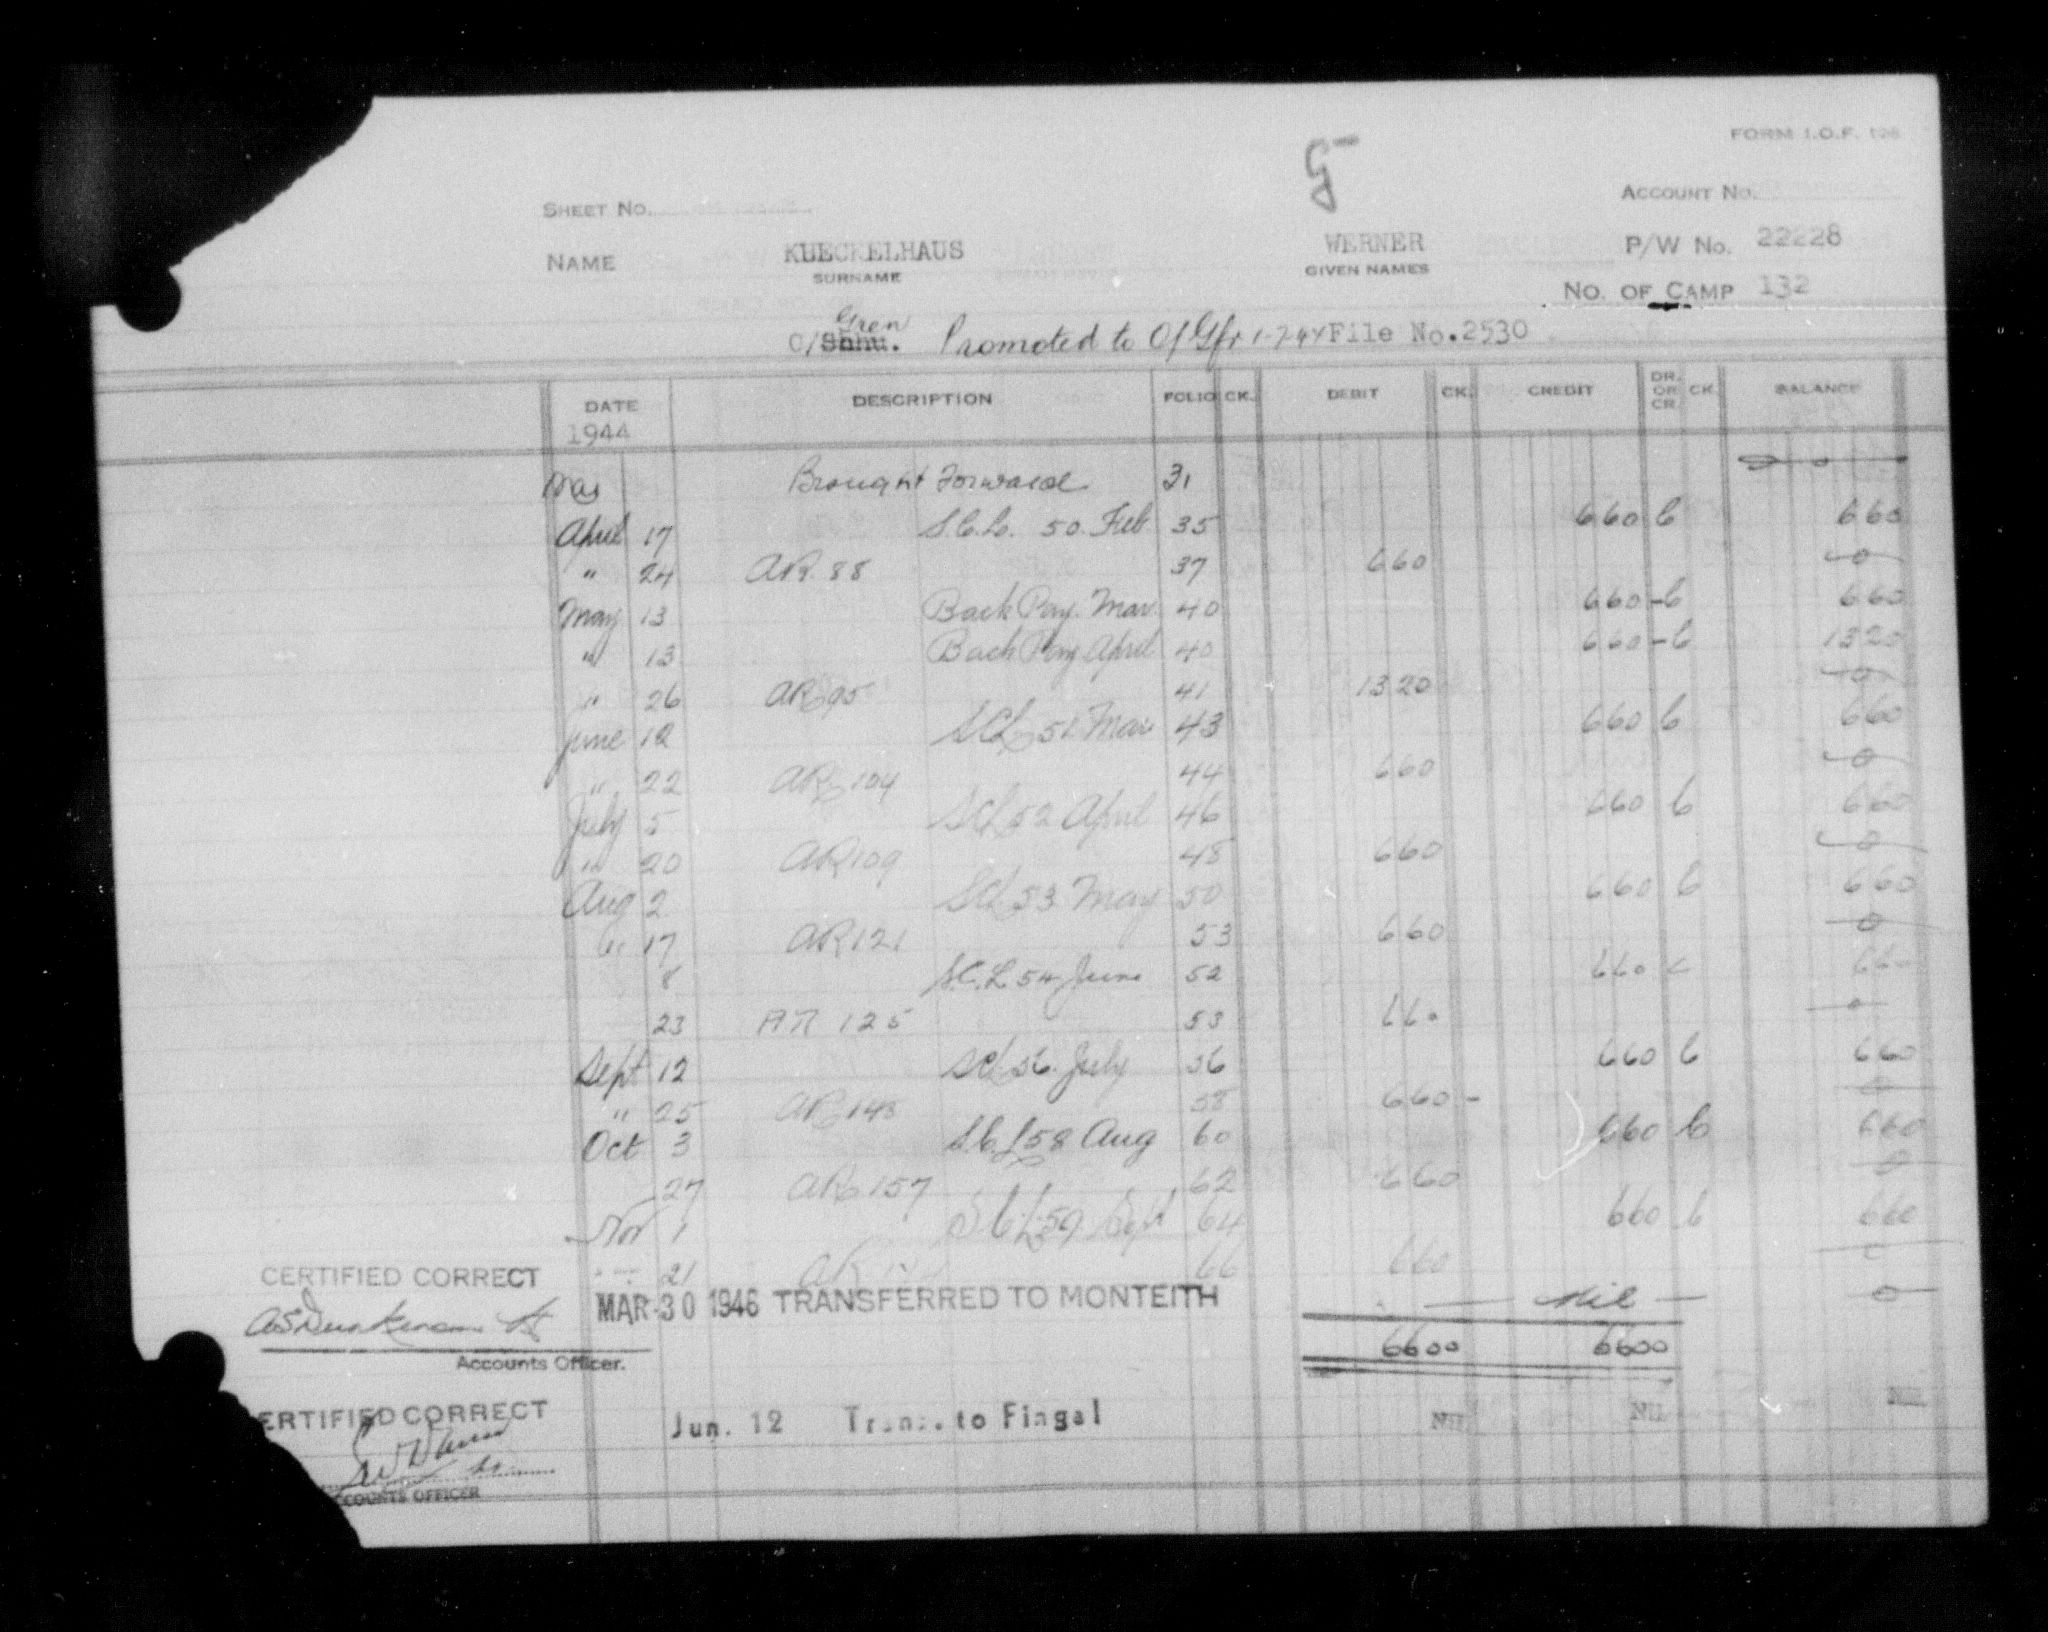 FORM I.O.F.
5
SHEET NO. ACCOUNT NO.
NAME KUECKELHAUS WERNER P/W No. 22228
SURNAME GIVEN NAMES
NO. OF CAMP 132
Gren
O/Shhu. Promoted to O/Gfr 1-7-44 File No.2530
DATE DESCRIPTION FOLIO CK. DEBIT CK. CREDIT DR. OR CR. CK. BALANCE
1944
Brought Forward 31 0
April 17 S.C.L. 50. Feb 35 660 C 660
" 24 AR. 88 37 660 0
May 13 Back Pay. Mar. 40 660 - C 660
" 13 Back Pay April 40 660 - C 1320
" 26 AR 95 41 1320 0
June 12 SCL 51 Mar 43 660 C 660
" 22 AR 104 44 660 0
July 5 SCL 52 April 46 660 C 660
" 20 AR 109 48 660 0
Aug 2 SCL 53 May 50 660 C 660
" 17 AR 121 53 660 0
8 S.C.L 54 June 52 660 C 660
23 AR 125 53 660 0
Sept 12 SCL 56 July 56 660 C 660
" 25 AR 148 58 660 - 0
Oct 3 SCL 58 Aug 60 660 C 660
27 AR 157 62 660 0
Nov 1 SCL 59 Sept 64 660 C 660
21 AR 66 660 0
CERTIFIED CORRECT
MAR 30 1946 TRANSFERRED TO MONTEITH Nil 0
6600 6600
Accounts Officer.
ERTIFIED CORRECT
Jun. 12 Trans. to Fingal Nil NIL NIL
CCOUNTS OFFICER